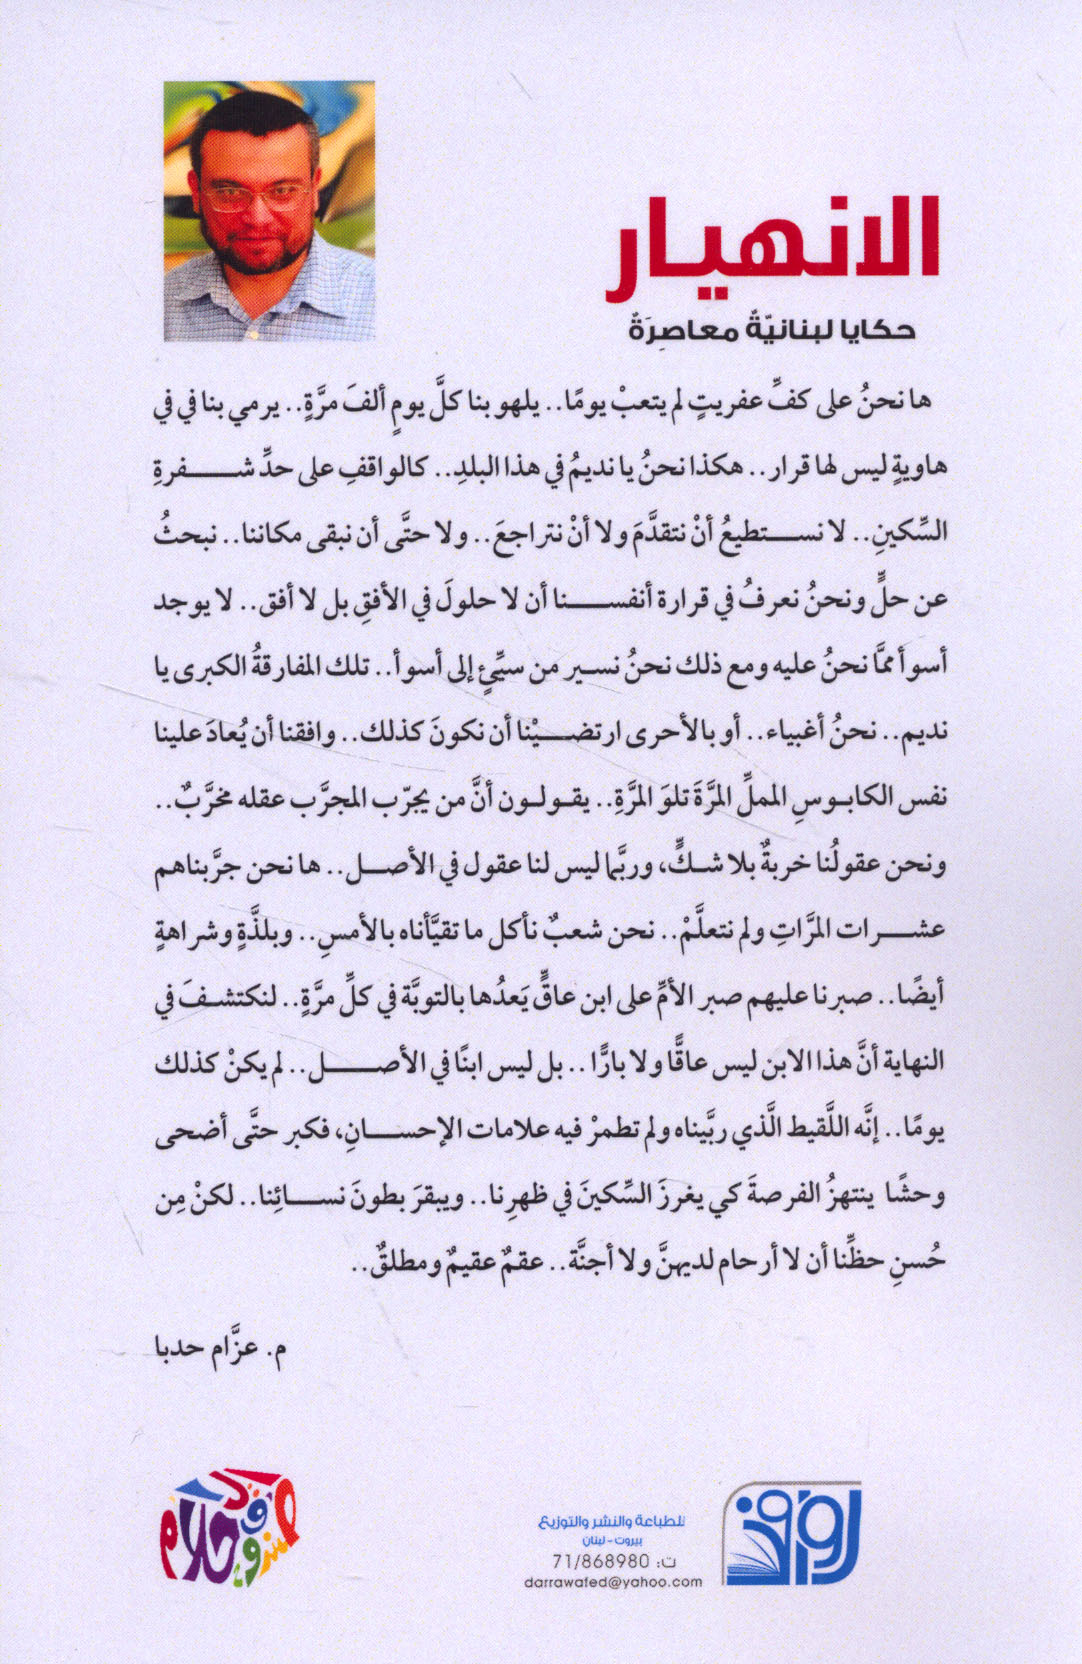 الانهيار
حكايا لبنانيّةٌ معاصِرَةٌ
ها نحنُ على كفِّ عفريتٍ لم يتعبْ يومًا.. يلهو بنا كلَّ يومٍ ألفَ مرَّةٍ.. يرمي بنا في في
هاويةٍ ليس لها قرار.. هكذا نحنُ يا نديمُ في هذا البلدِ.. كالواقفِ على حدِّ شفرةِ
السِّكينِ.. لا نستطيعُ أنْ نتقدَّمَ ولا أنْ نتراجعَ.. ولا حتَّى أن نبقى مكاننا.. نبحثُ
عن حلٍّ ونحنُ نعرفُ في قرارة أنفسنا أن لا حلولَ في الأفقِ بل لا أفق.. لا يوجد
أسوأ ممَّا نحنُ عليه ومع ذلك نحنُ نسير من سيِّئٍ إلى أسوأ.. تلك المفارقةُ الكبرى يا
نديم.. نحنُ أغبياء.. أو بالأحرى ارتضيْنا أن نكونَ كذلك.. وافقنا أن يُعادَ علينا
نفس الكابوسِ المملِّ المرَّةَ تلوَ المرَّةِ.. يقولون أنَّ من يجرّب المجرَّب عقله مخرَّبٌ..
ونحن عقولُنا خربةٌ بلا شكٍّ، وربَّما ليس لنا عقول في الأصل.. ها نحن جرَّبناهم
عشرات المرَّاتِ ولم نتعلَّمْ.. نحن شعبٌ نأكل ما تقيَّأناه بالأمسِ.. وبلذَّةٍ وشراهةٍ
أيضًا.. صبرنا عليهم صبر الأمِّ على ابن عاقٍّ يَعدُها بالتوبَّة في كلِّ مرَّةٍ.. لنكتشفَ في
النهاية أنَّ هذا الابن ليس عاقًّا ولا بارًّا.. بل ليس ابنًا في الأصل.. لم يكنْ كذلك
يومًا.. إنَّه اللَّقيط الَّذي ربَّيناه ولم تطمرْ فيه علامات الإحسانِ، فكبر حتَّى أضحى
وحشًا ينتهزُ الفرصةَ كي يغرزَ السِّكينَ في ظهرِنا.. ويبقرَ بطونَ نسائِنا.. لكنْ مِن
حُسنِ حظِّنا أن لا أرحام لديهنَّ ولا أجنَّة.. عقمٌ عقيمٌ ومطلقٌ..
م. عزَّام حدبا
روافد
للطباعة والنشر والتوزيع
بيروت - لبنان
ت: 71/868980
darrawafed@yahoo.com